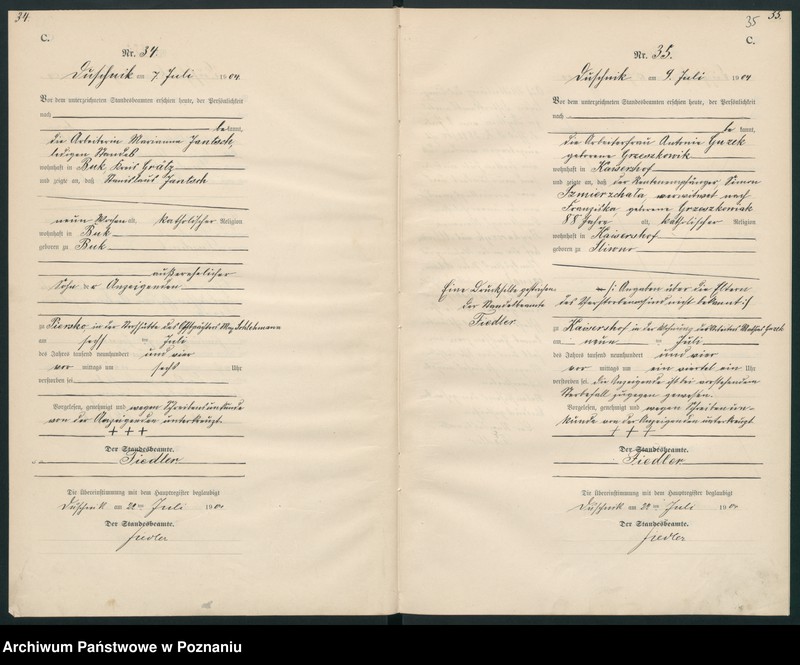 34.
C.
Nr. 34.
Duschnik am 7 Juli 1904.
Vor dem unterzeichneten Standesbeamten erschien heute, der Persönlichkeit
nach
be kannt,
die Arbeiterin Marianna Jantsch
ledigen Standes
wohnhaft in Buk Kreis Grätz
und zeigte an, daß Stanislaus Jantsch
neun Wochen alt, katholischer Religion
wohnhaft in Buk
geboren zu Buk
außerehelicher
Sohn der Anzeigenden
zu Piersko in der des
am sechs ten Juli
des Jahres tausend neunhundert und vier
vor mittags um sechs Uhr
verstorben sei
Vorgelesen, genehmigt und wegen Schreibensunkunde
von der Anzeigenden unterkreuzt.
+++
Der Standesbeamte.
Fiedler
Die Übereinstimmung mit dem Hauptregister beglaubigt
Duschnik am 22 ten Juli 1904
Der Standesbeamte.
Fiedler
35
35.
C.
Nr. 35.
Duschnik am 9. Juli 1904
Vor dem unterzeichneten Standesbeamten erschien heute, der Persönlichkeit
nach
be kannt,
die Arbeiterfrau Antonie Guzek
geborene Grzeszkowik
wohnhaft in Kaisershof
und zeigte an, daß der Rentenempfänger Simon
Szmierzchala, verwitwet nach
Franziska, geborene Grzeszkowiak
88 Jahre alt, katholischer Religion
wohnhaft in Kaisershof
geboren zu
Eine Druckzeile gestrichen.
Der Standesbeamte
Fiedler
/: Angaben über die Eltern
des Verstorbenen sind nicht bekannt :/
zu Kaisershof in der Wohnung des Arbeiters
am neun ten Juli
des Jahres tausend neunhundert und vier
vor mittags um ein viertel ein Uhr
verstorben sei. Die Anzeigende ist bei vorstehendem
Sterbefall zugegen gewesen.
Vorgelesen, genehmigt und wegen Schreibensun-
kunde von der Anzeigenden unterkreuzt
+++
Der Standesbeamte.
Fiedler
Die Übereinstimmung mit dem Hauptregister beglaubigt
Duschnik am 22 ten Juli 1904
Der Standesbeamte.
Fiedler
Archiwum Państwowe w Poznaniu